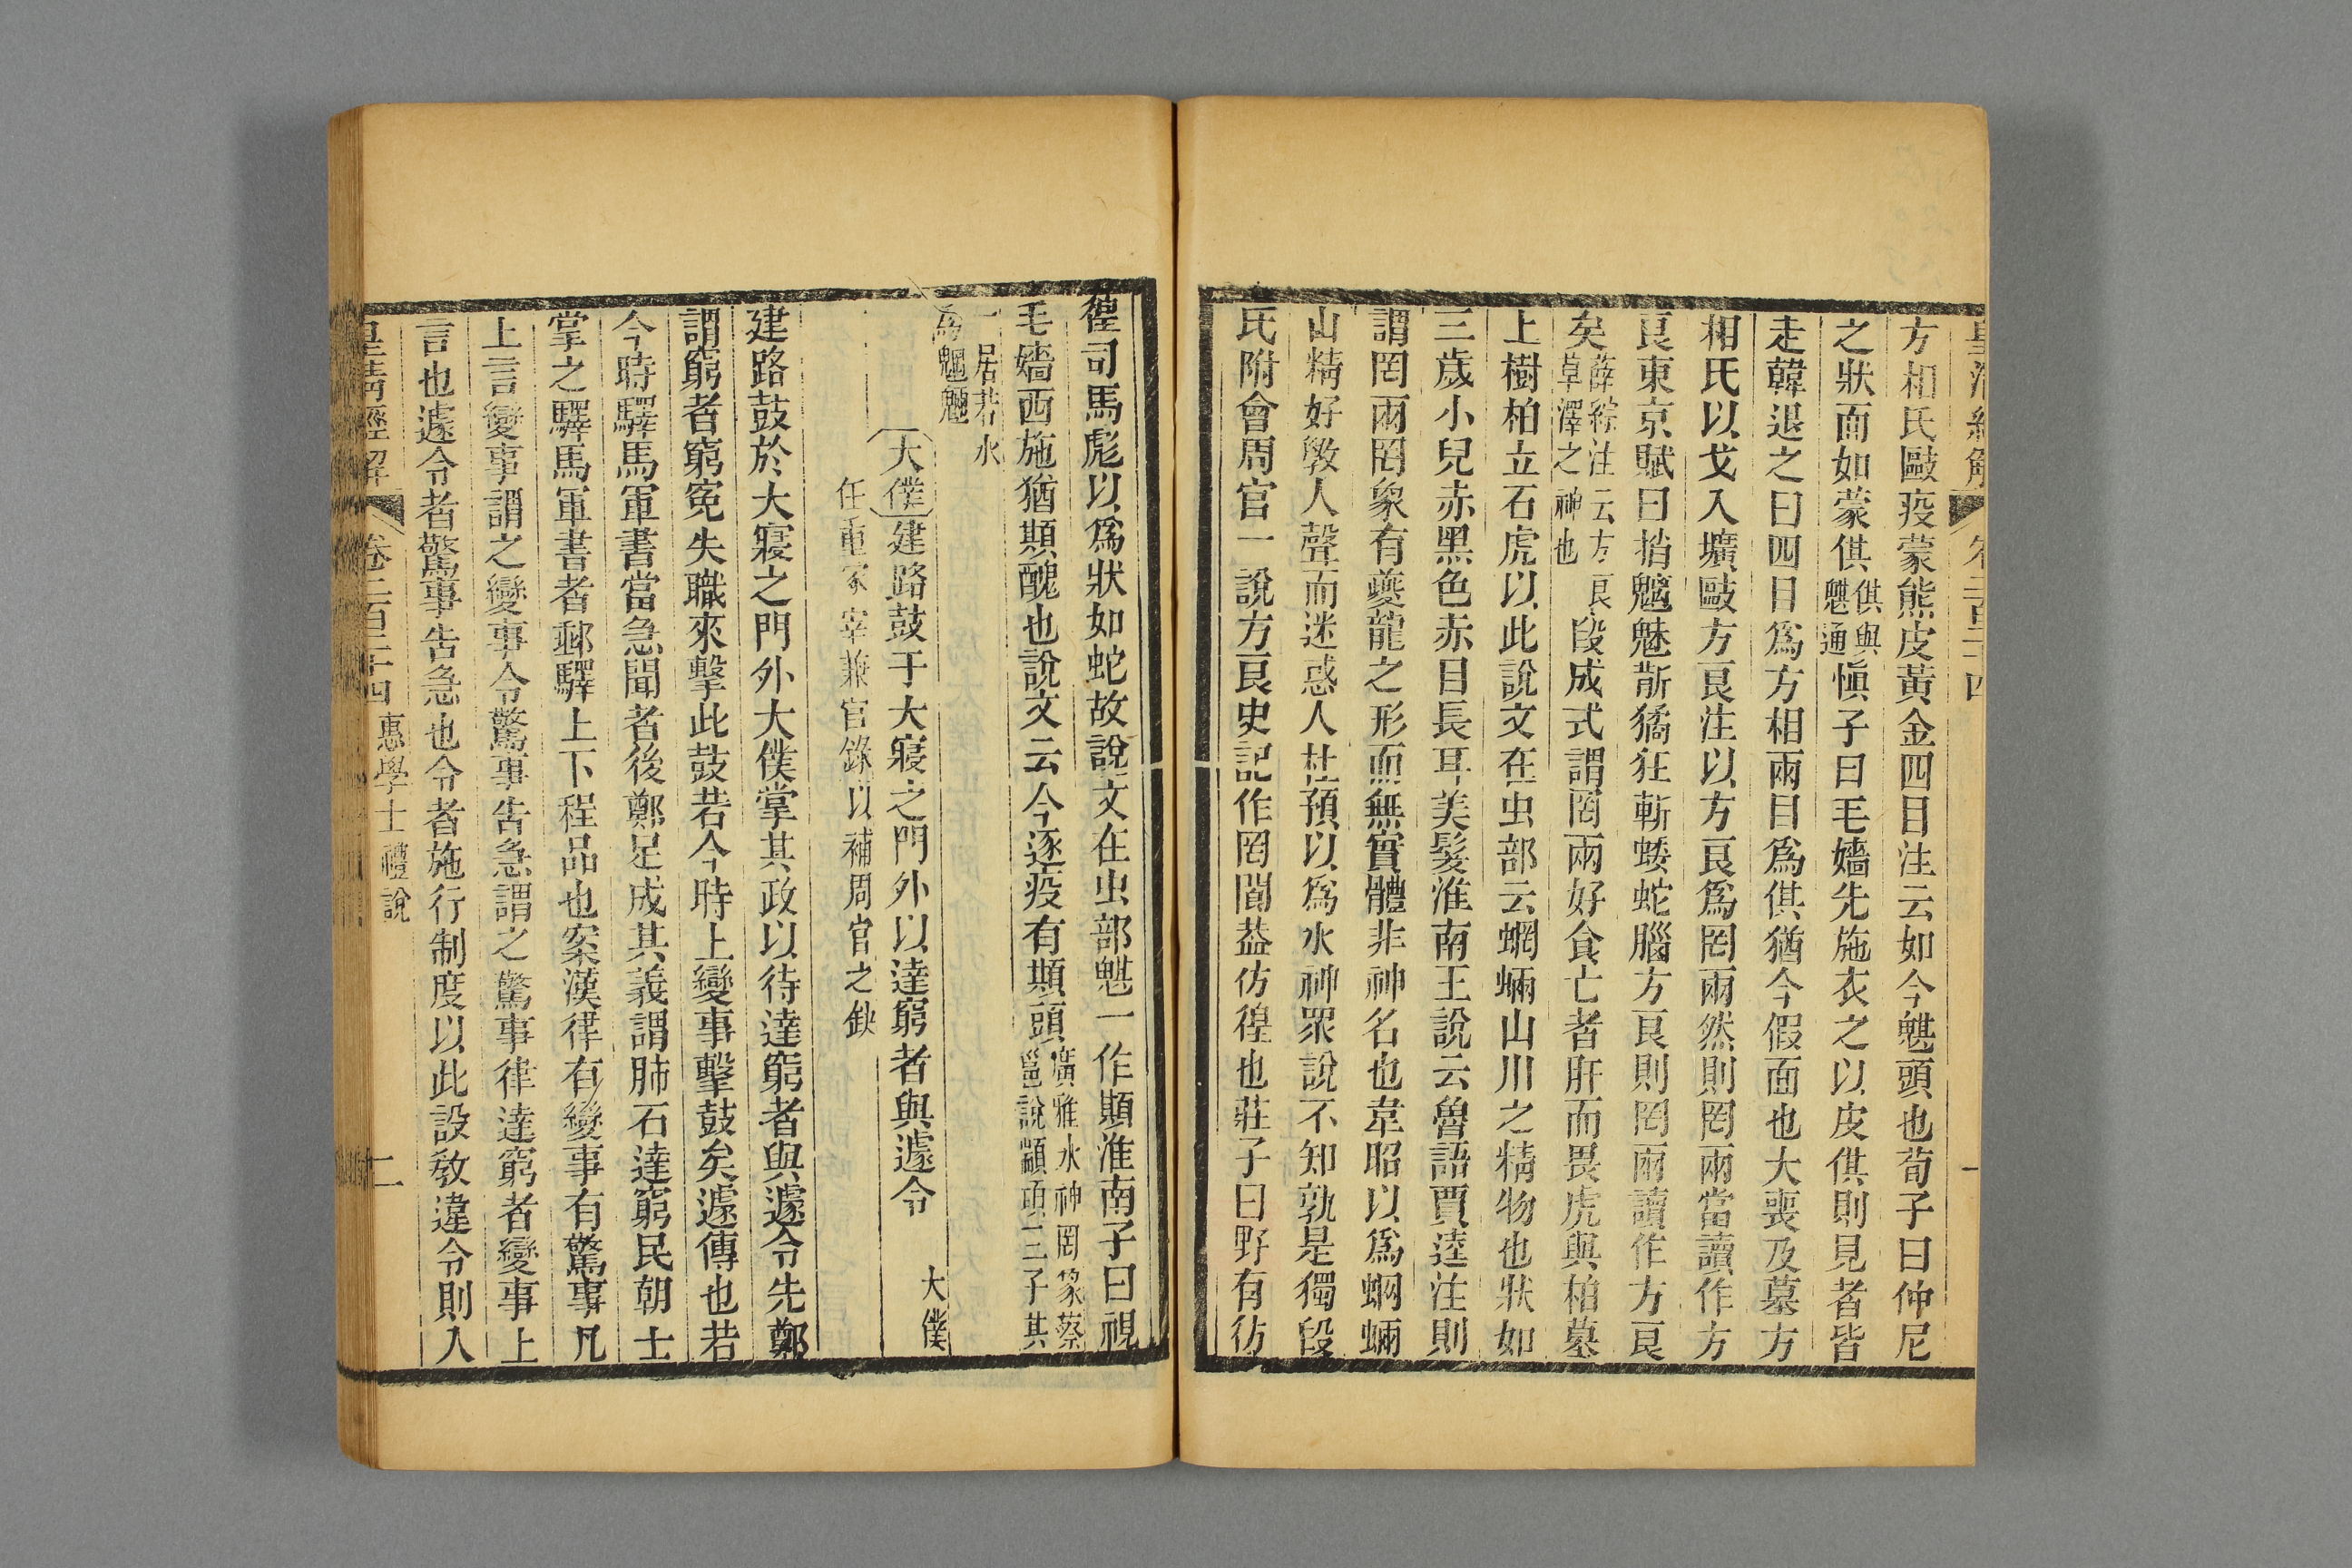 皇清經解 卷二百二十四 一
方相氏毆疫蒙熊皮黃金四目注云如今魌頭也荀子曰仲尼
之狀面如蒙倛倛與魌通愼子曰毛嬙先施衣之以皮倛則見者皆
走韓退之曰四目爲方相兩目爲倛猶今假面也大喪及墓方
相氏以戈入壙毆方良注以方良爲罔兩然則罔兩當讀作方
良東京賦曰捎魑魅斮獝狂斬蜲蛇腦方良則罔兩讀作方良
矣薛綜注云方良草澤之神也段成式謂罔兩好食亡者肝而畏虎與柏墓
上樹柏立石虎以此說文在虫部云蝄蜽山川之精物也狀如
三歲小兒赤黑色赤目長耳美髮淮南王說云魯語賈逵注則
謂罔兩罔象有夔龍之形而無實體非神名也韋昭以爲蝄蜽
山精好斆人聲而迷惑人杜預以爲水神眾說不知孰是獨段
氏附會周官一說方良史記作罔閬葢仿徨也莊子曰野有彷
徨司馬彪以爲狀如蛇故說文在虫部魌一作䫏淮南子曰視
毛嬙西施猶䫏醜也說文云今逐疫有䫏頭廣雅水神罔象蔡邕說顓頊三子其
一居若水爲魍魎
大僕建路鼓于大寢之門外以達窮者與遽令 大僕
任重冢宰兼官錄以補周官之缺
建路鼓於大寢之門外大僕掌其政以待達窮者與遽令先鄭
謂窮者窮冤失職來擊此鼓若今時上變事擊鼓矣遽傳也若
今時驛馬軍書當急聞者後鄭足成其義謂肺石達窮民朝士
掌之驛馬軍書者郵驛上下程品也案漢律有變事有驚事凡
上言變事謂之變事令驚事告急謂之驚事律達窮者變事上
言也遽令者驚事告急也令者施行制度以此設教違令則入
皇清經解 卷二百二十四 惠學士禮說 二